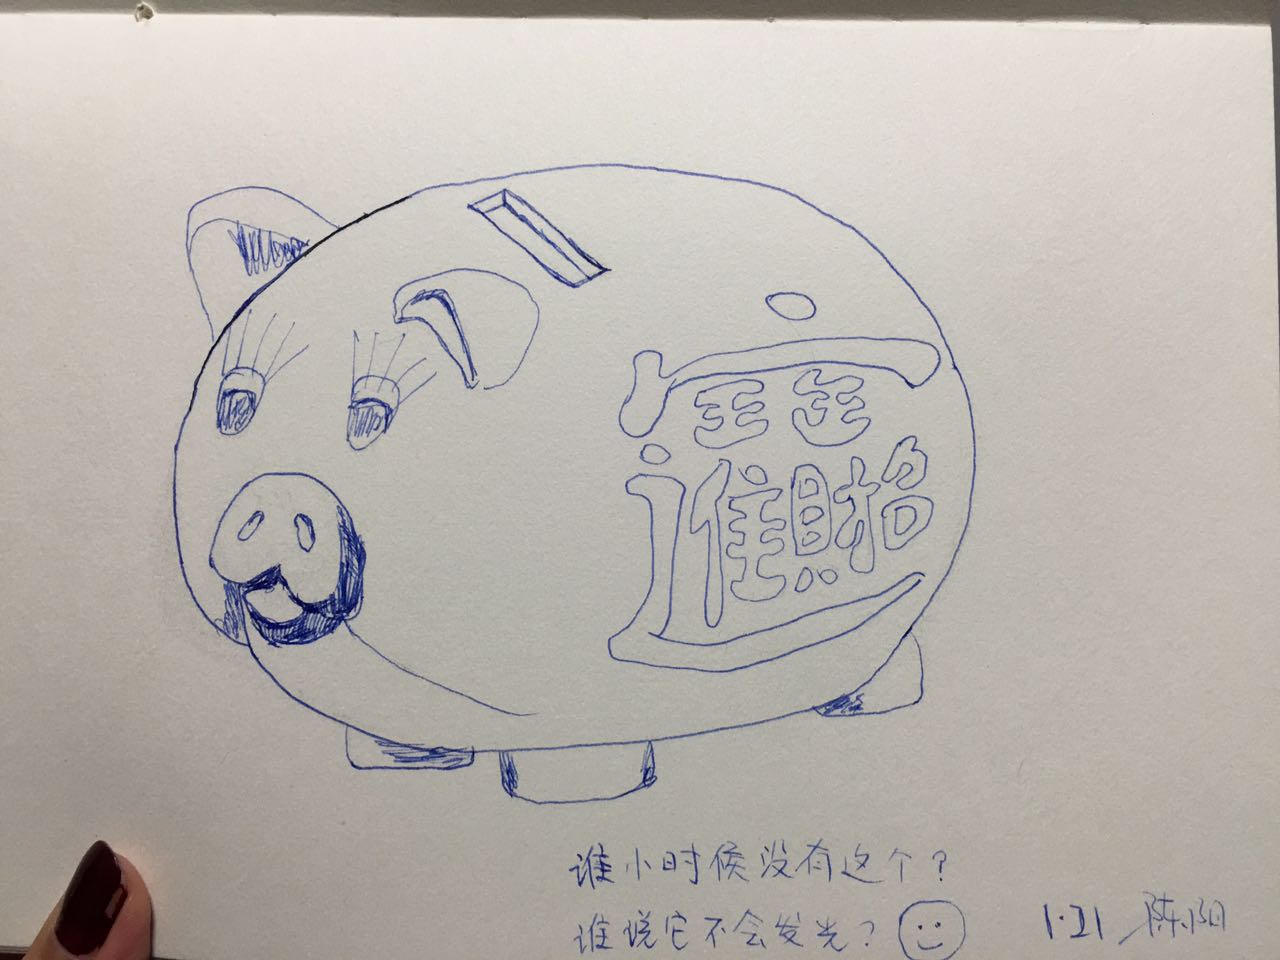 招財進寶
谁小时候没有这个?
谁说它不会发光?
1·21 陈阳